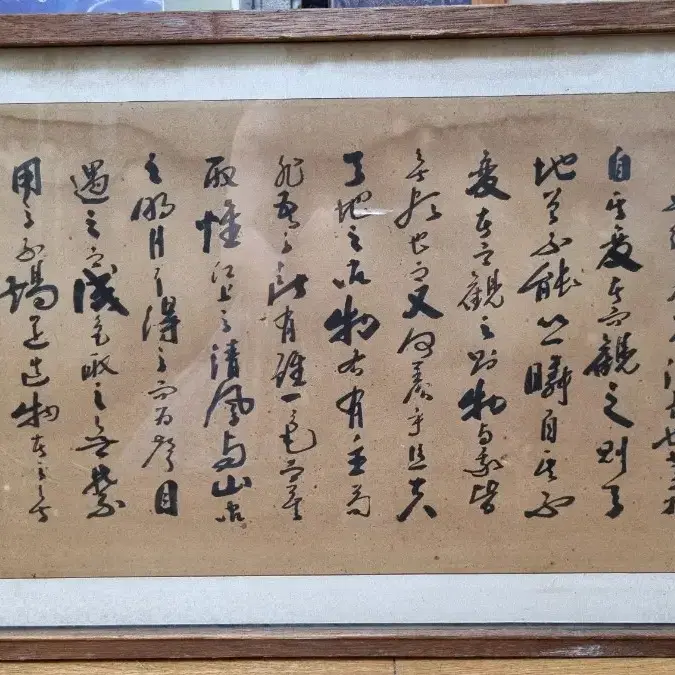 自其變者而觀之則天
地曾不能以一瞬自其不
變者而觀之則物與我皆
無盡也而又何羨乎且夫
天地之間物各有主苟
非吾之所有雖一毫而莫
取惟江上之清風與山間
之明月耳得之而為聲目
遇之而成色取之無禁
用之不竭是造物者之無